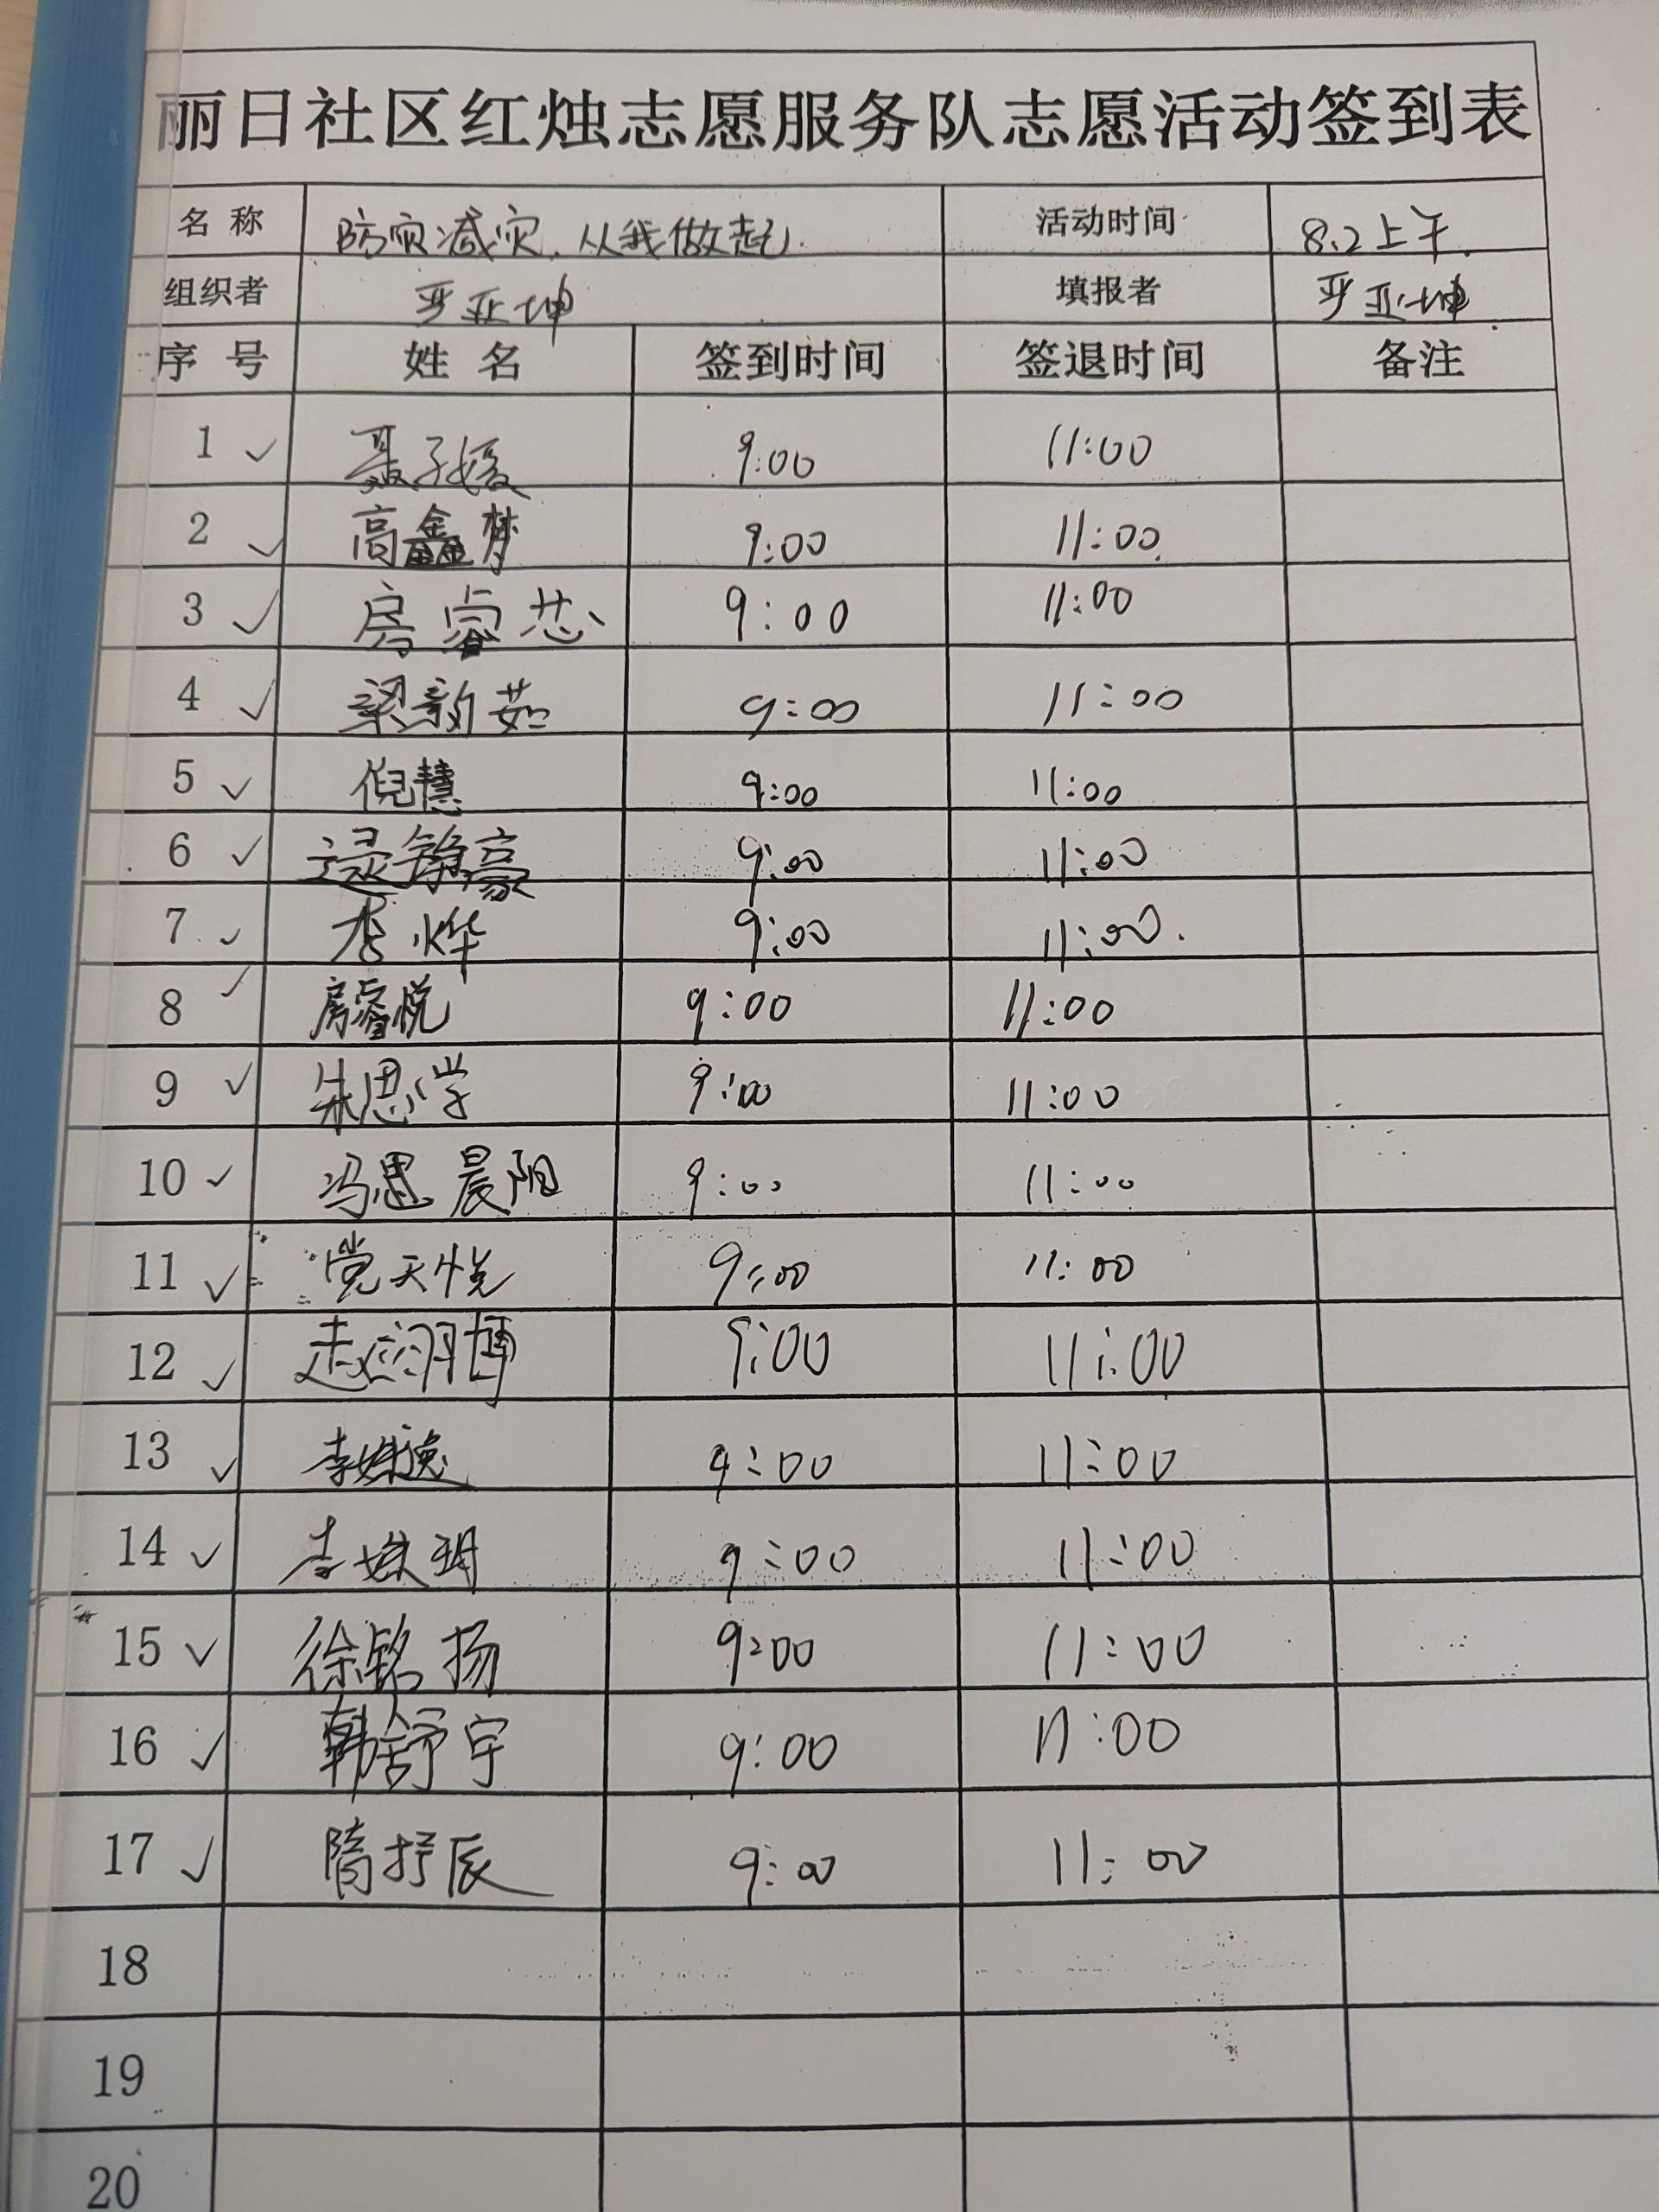 丽日社区红烛志愿服务队志愿活动签到表
名 称 防灾减灾，从我做起. 活动时间 8.2上午
组织者 亚坤 填报者 亚坤
序 号 姓 名 签到时间 签退时间 备注
1 聂子媛 9:00 11:00
2 高鑫梦 9:00 11:00
3 房睿芯 9:00 11:00
4 梁韵茹 9:00 11:00
5 倪慧 9:00 11:00
6 逯铮豪 9:00 11:00
7 李烨 9:00 11:00
8 房睿悦 9:00 11:00
9 朱思学 9:00 11:00
10 冯思晨阳 9:00 11:00
11 党天悦 9:00 11:00
12 9:00 11:00
13 9:00 11:00
14 9:00 11:00
15 徐铭扬 9:00 11:00
16 韩舒宇 9:00 11:00
17 隋抒辰 9:00 11:00
18
19
20